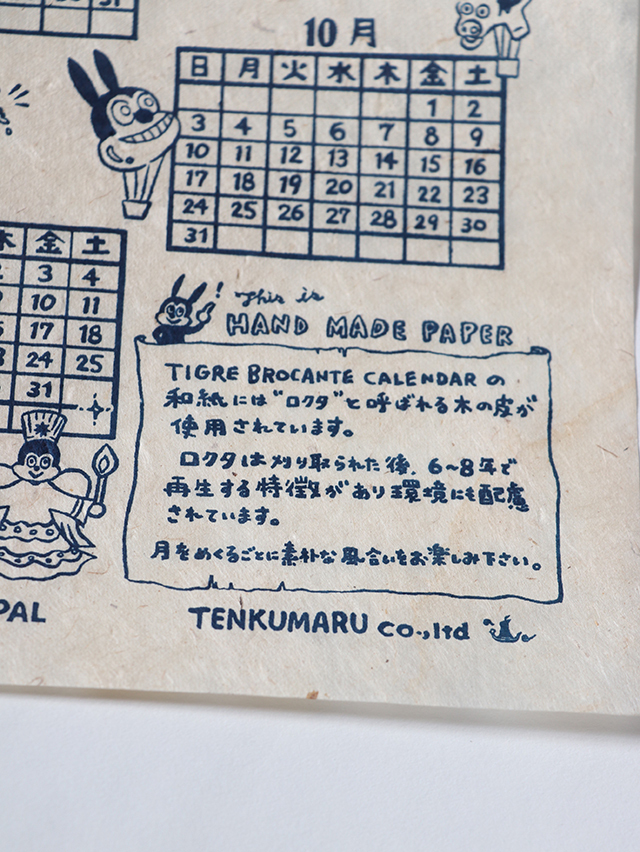 31
10月
日 月 火 水 木 金 土
1 2
3 4 5 6 7 8 9
10 11 12 13 14 15 16
17 18 19 20 21 22 23
24 25 26 27 28 29 30
31
木 金 土
2 3 4
10 11
17 18
24 25
31
! This is
HAND MADE PAPER
TIGRE BROCANTE CALENDAR の
和紙には"ロクタ"と呼ばれる木の皮が
使用されています。
ロクタは刈り取られた後、6~8年で
再生する特徴があり環境にも配慮
されています。
月をめくるごとに素朴な風合いをお楽しみ下さい。
PAL
TENKUMARU co.,ltd